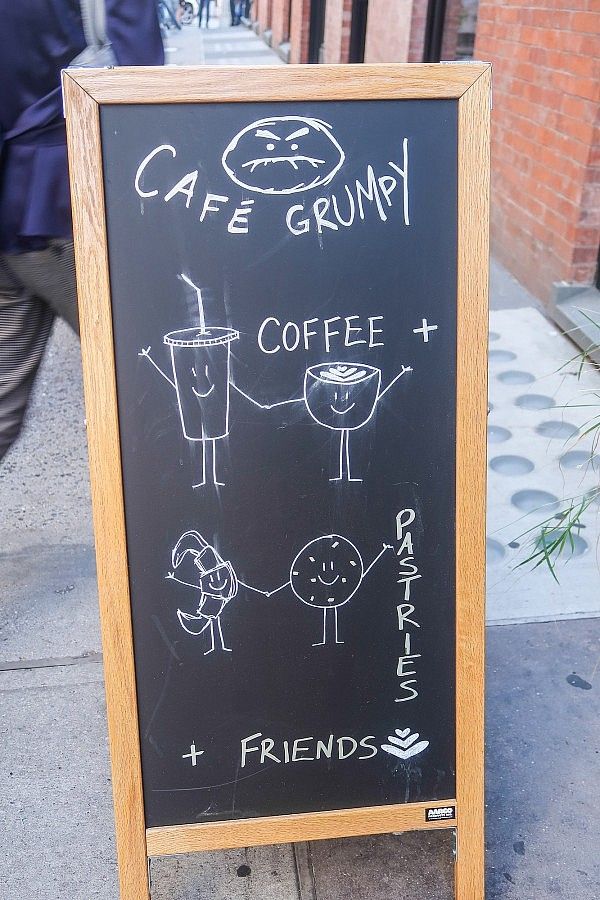 CAFÉ GRUMPY
COFFEE +
PASTRIES
+ FRIENDS
AARCO